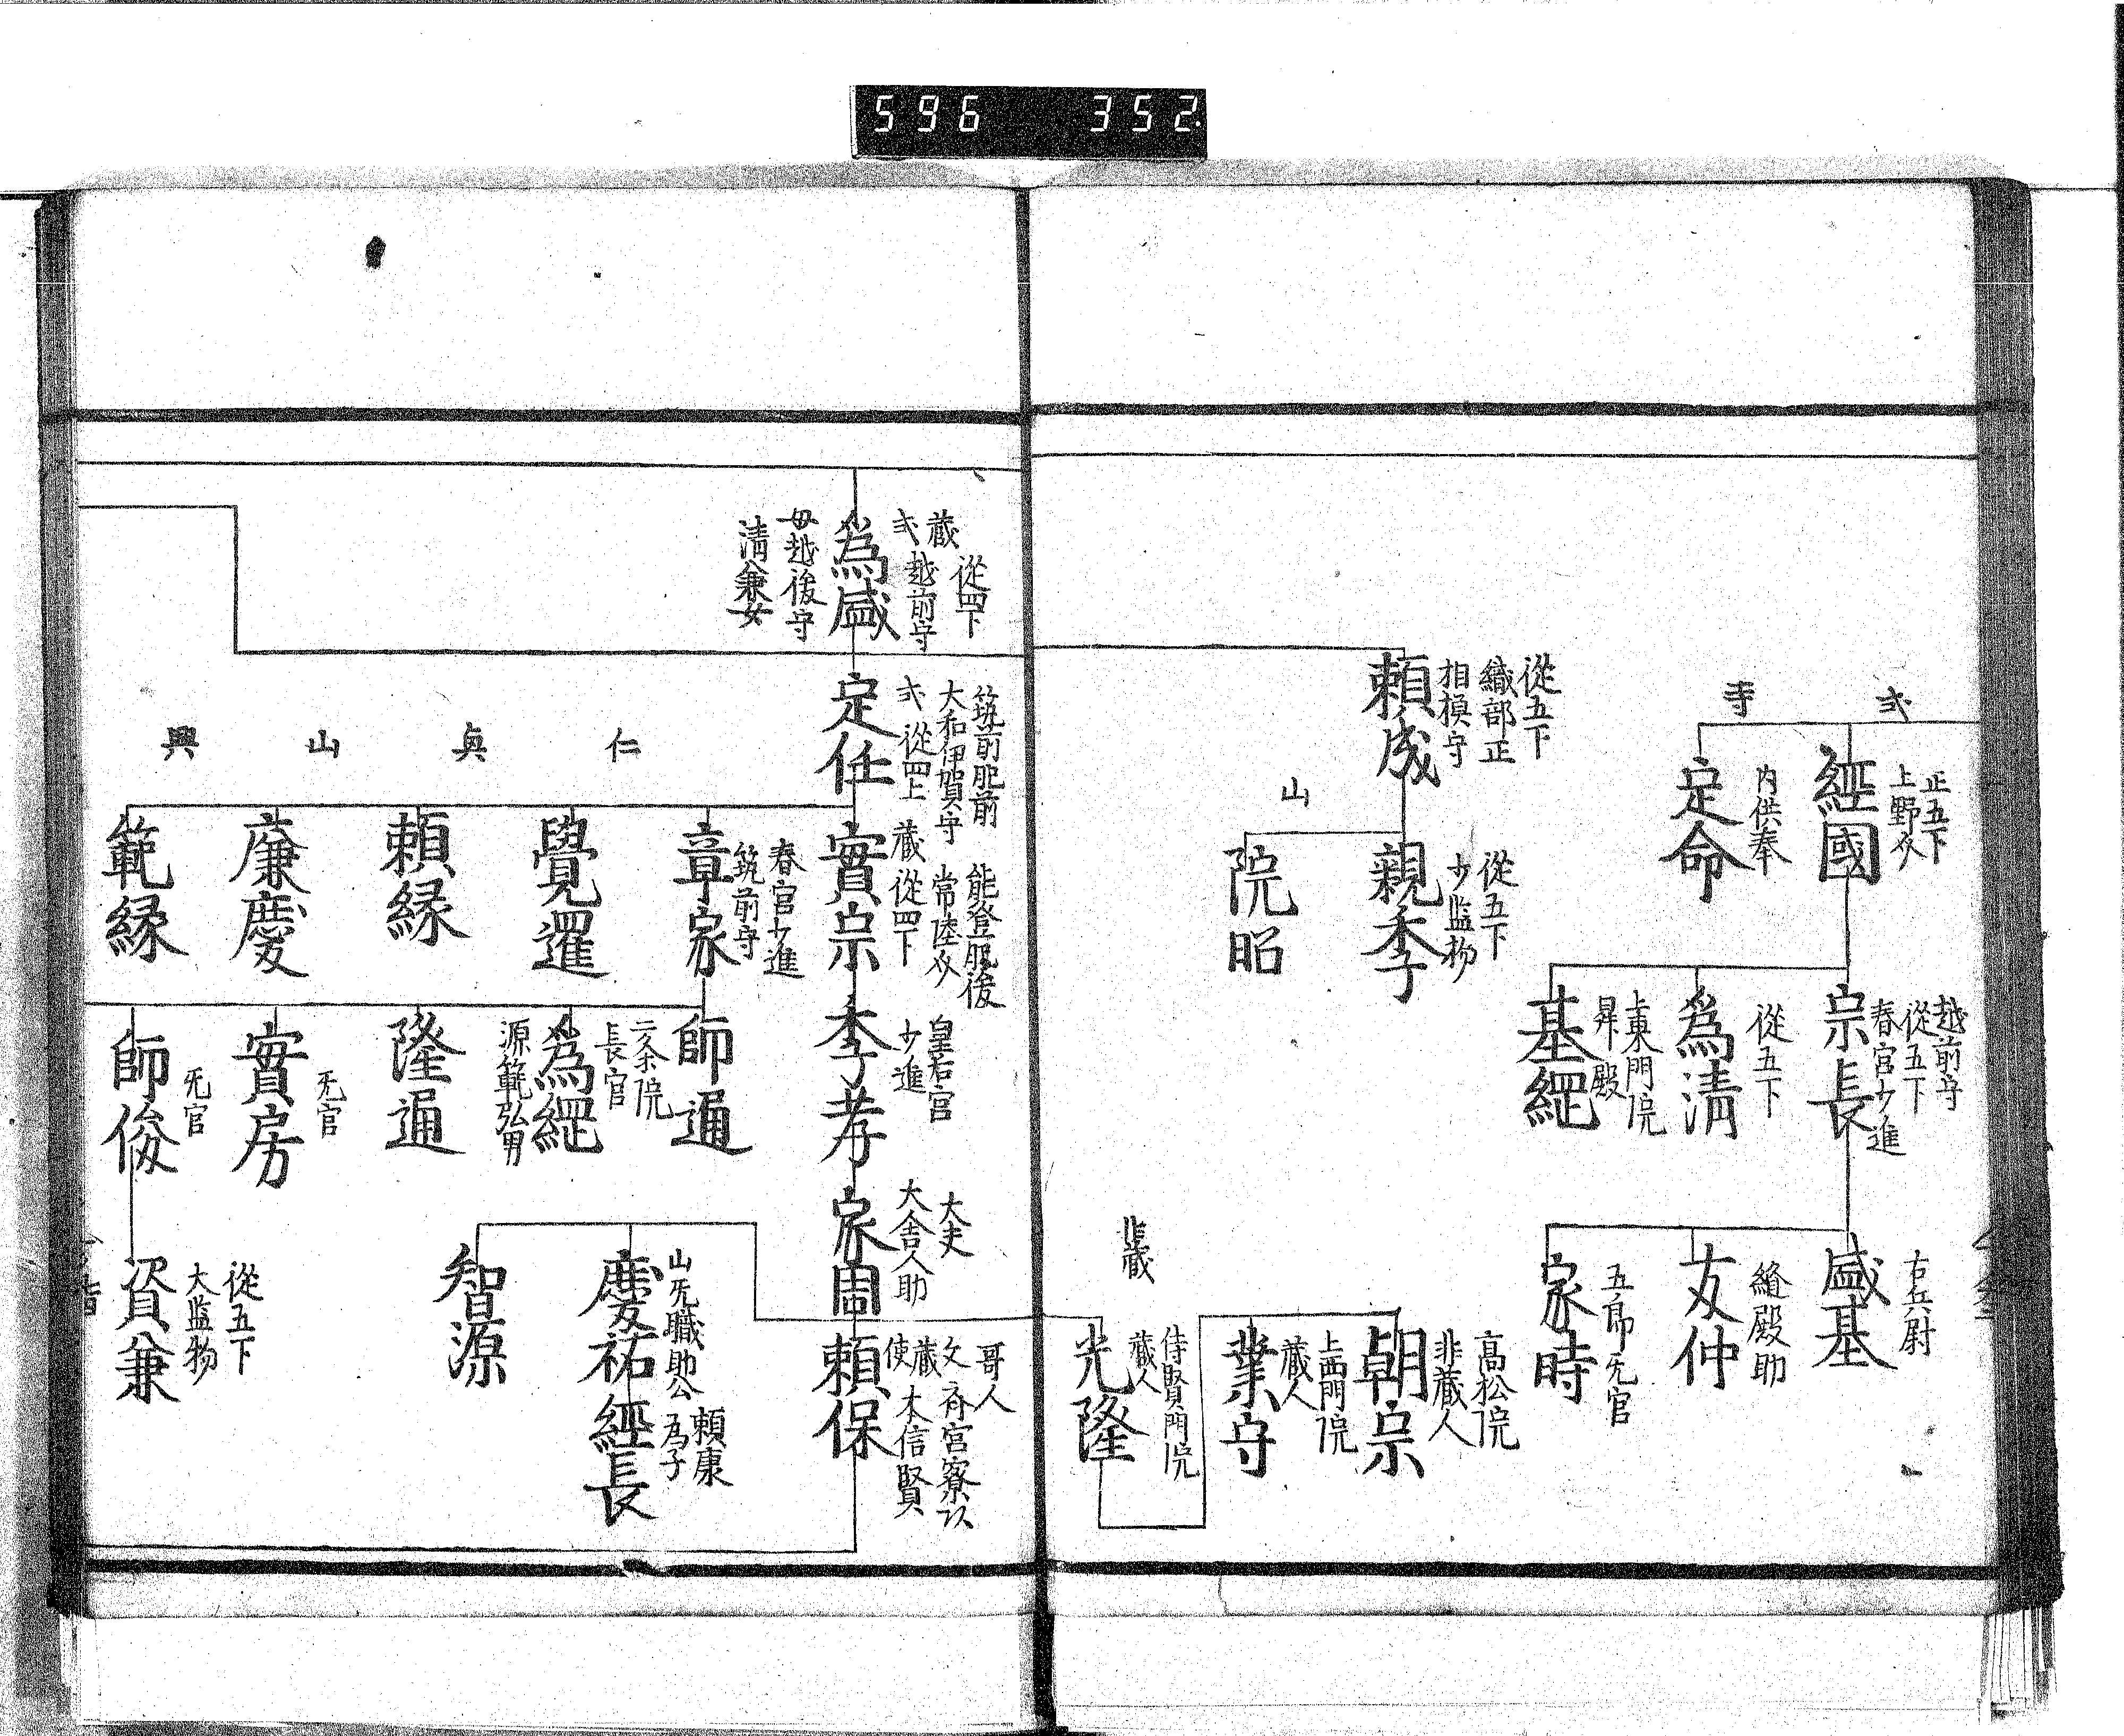 596 352
弐
正五下
上野介
經國
寺
内供奉
定命
越前守
從五下
春宮少進
宗長
從五下
為清
上東門院
昇殿
基經
右兵尉
盛基
縫殿助
友仲
五郎无官
家時
從五下
織部正
相模守
頼成
從五下
少監物
親季
山
院昭
高松院
非蔵人
朝宗
上西門院
蔵人
業守
非蔵
待賢門院
蔵人
光隆
蔵
從四下
弐越前守
為盛
母越後守
清兼女
筑前肥前
大和伊賀守
弐從四上
定任
能登肥後
常陸介
蔵從四下
實宗
皇后宮
少進
季孝
大夫
大舎人助
家周
哥人
文斎宮寮以
蔵本信賢
使
頼保
春宮少進
筑前守
章家
仁
覺暹
真
頼縁
山
廉慶
興
範縁
師通
二条院
長官
為經
源範弘男
隆通
无官
實房
无官
師俊
山无職助公
慶祐
頼康
為子
經長
智源
從五下
大監物
資兼